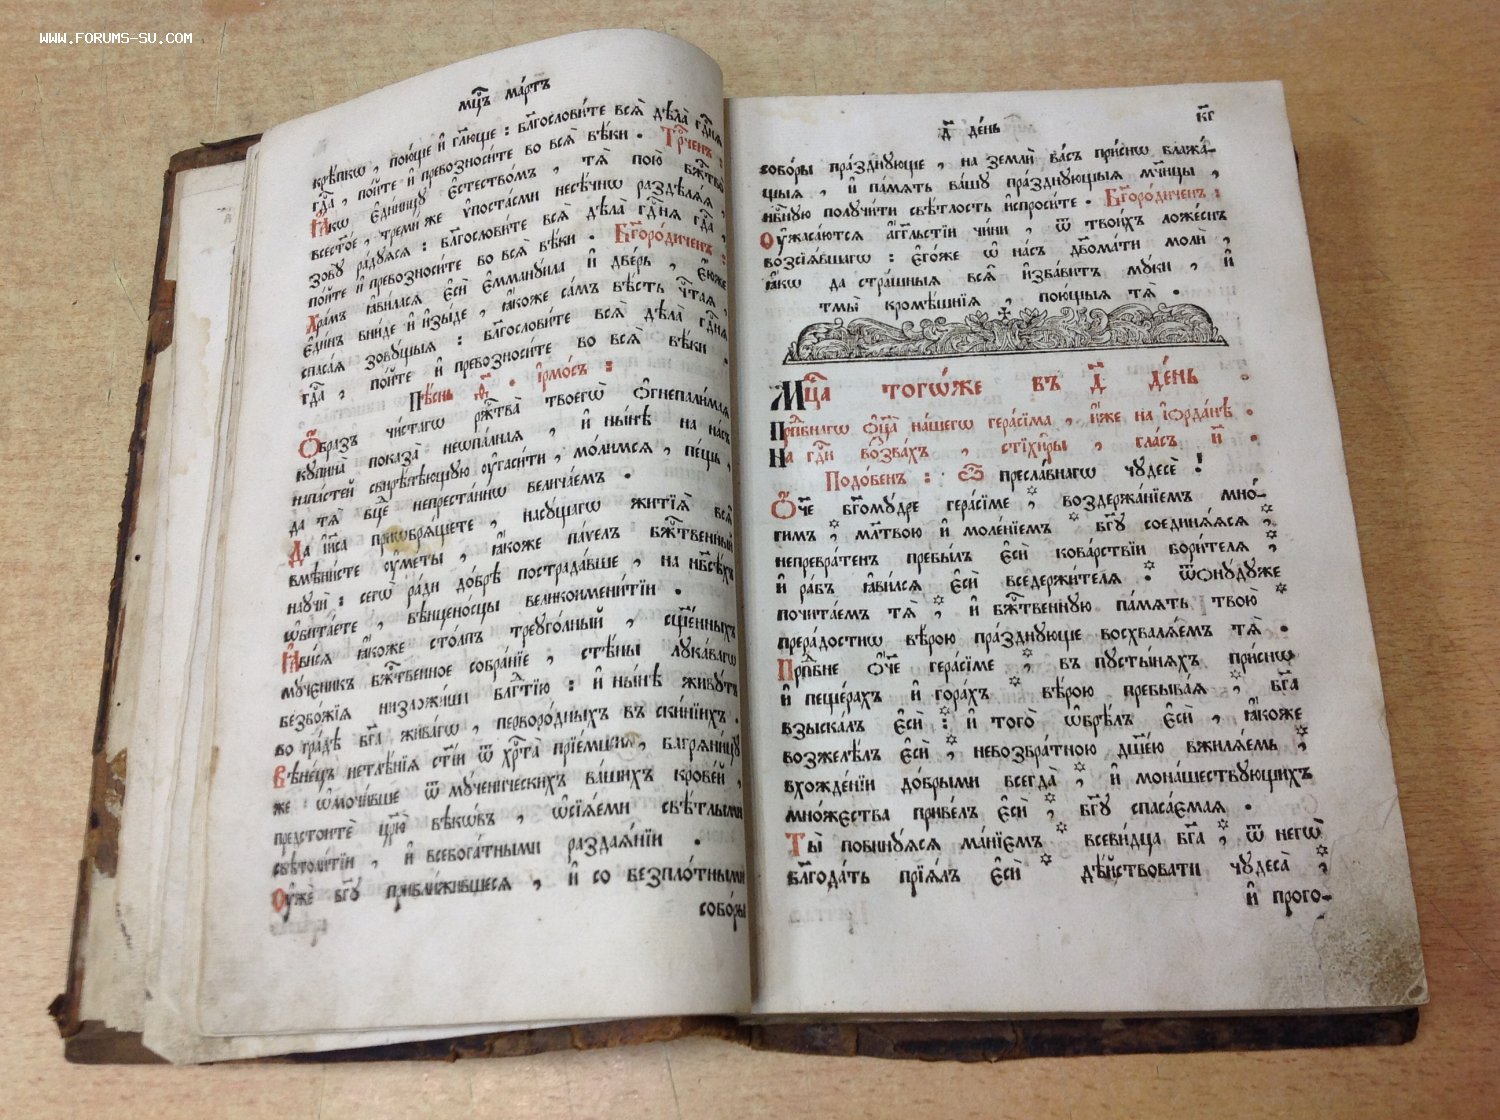 WWW.FORUMS-SU.COM
мц҃ъ ма́ртъ
крѣ́пкѡ, пою́ще и҆ гл҃юще : блг҃ослови́те всѧ̑ дѣла̀ гдⷭ҇нѧ
гдⷭ҇а, по́йте и҆ превозноси́те во всѧ̑ вѣ́ки . Трⷪ҇ченъ :
Ꙗ҆́кѡ є҆ди́ницу є҆стество́мъ, тѧ̀ пою̀ бжⷭ҇тво̀
всесто́е, треми́же ѵ҆поста́сми несѣ́чнѡ раздѣлѧ́ѧ,
зову̀ ра́дуѧсѧ : блг҃ослови́те всѧ̑ дѣла̀ гдⷭ҇нѧ гдⷭ҇а,
по́йте и҆ превозноси́те во всѧ̑ вѣ́ки . Бг҃оро́диченъ :
Хра́мъ ꙗ҆ви́ласѧ є҆сѝ є҆мману́ила и҆ две́рь, є҆́юже
є҆ди́нъ вни́де и҆ и҆зы́де, ꙗ҆́коже са́мъ вѣ́сть чⷭ҇таѧ,
спаса́ѧ зову́щыѧ : блг҃ослови́те всѧ̑ дѣла̀ гдⷭ҇нѧ
гдⷭ҇а, по́йте и҆ превозноси́те во всѧ̑ вѣ́ки .
Пѣ́снь ѳ҃ . і҆рмо́съ :
Ѻ҆́бразъ чи́стагѡ ржⷭ҇тва̀ твоегѡ̀ ѻ҆гнепали́маѧ
купина̀ показа̀ неѡпа́лнаѧ, и҆ ны́нѣ на на́съ
напа́стей свирѣ́пѣющую ᲂу҆гаси́ти, мо́лимсѧ, пе́щь,
да тѧ̀ бц҃е непреста́ннѡ велича́емъ .
Да і҆и҃са приѡбрѧ́щете, насу́щагѡ житїѧ̀ всѧ̑
вмѣни́сте ᲂу҆ме́ты, ꙗ҆́коже па́велъ бжⷭ҇твенный
научѝ : сегѡ̀ ра́ди до́брѣ пострада́вше, на нб҃сѣ́хъ
ѡ҆бита́ете, вѣнцено́сцы великоимени́тїи .
Ꙗ҆ви́сѧ ꙗ҆́коже сто́лпъ треуго́лный, сщ҃е́нныхъ
мч҃ченикъ бжⷭ҇твенное собра́нїе, стѣ́ны лука́вагѡ
безбо́жїѧ низложи́ши блгⷣтїю : и҆ ны́нѣ живу́тъ
во гра́дѣ бг҃а жива́гѡ, перворо́дныхъ въ ски́нїихъ .
Вѣне́цъ нетлѣ́нїѧ ст҃і́и ѿ хрⷭ҇та̀ прїе́мше, багрѧни́цу
же ѡ҆мочи́вше ѿ му́ченическихъ ва́шихъ крове́й,
предстоитѐ цр҃ю̀ вѣкѡ́въ, ѡ҆сїѧ́еми свѣ́тлыми
свѣтоли́тїи, и҆ всебога́тными раздаѧ́нїи .
Оу҆жѐ бг҃у прибли́жившесѧ, и҆ со безпло́тными
собо́ры
д҃ де́нь
к҃г
собо́ры пра́зднующе, на землѝ ва́съ при́снѡ блажа́-
щыѧ, и҆ па́мѧть ва́шу пра́зднующыѧ мч҃ницы,
нбⷭ҇ную получи́ти свѣ́тлость и҆спроси́те . Бг҃оро́диченъ :
Оу҆жаса́ютсѧ а҆́гг҃льстїи чи́ни, ѿ твои́хъ ложе́снъ
возсїѧ́вшагѡ : є҆го́же ѡ҆ на́съ дв҃ома́ти молѝ,
ꙗ҆́кѡ да стра́шныѧ всѧ̑ и҆зба́витъ му́ки, и҆
тмы̀ кромѣ́шнїѧ, пою́щыѧ тѧ̀ .
Мцⷭ҇а тогѡ́же въ д҃ де́нь .
Прпⷣбнагѡ ѻ҆ц҃а̀ на́шегѡ гера́сїма, и҆́же на і҆ѻрда́нѣ .
На гдⷭ҇и воззва́хъ, стїхи̑ры, гла́съ и҃ .
Подо́бенъ : Ѽ пресла́внагѡ чудесѐ !
Ѻ҆́ч҃е бг҃ому́дре гера́сїме, воздержа́нїемъ мно́-
гимъ, мл҃твою и҆ моле́нїемъ бг҃у соединѧ́ѧсѧ,
непревра́тенъ пребы́лъ є҆сѝ кова́рствїи бори́телѧ,
и҆ ра́бъ ꙗ҆ви́лсѧ є҆сѝ вседержи́телѧ : ѿѻну́дуже
почита́емъ тѧ̀, и҆ бжⷭ҇твенную па́мѧть твою̀
прера́достнѡ вѣ́рою пра́зднующе восхвалѧ́емъ тѧ̀ .
Прпⷣбне ѻ҆́ч҃е гера́сїме, въ пусты́нѧхъ при́снѡ
и҆ пеще́рахъ и҆ гора́хъ вѣ́рою пребыва́ѧ, бг҃а
взыска́лъ є҆сѝ : и҆ того̀ ѡ҆брѣ́лъ є҆сѝ, ꙗ҆́коже
возжелѣ́лъ є҆сѝ, невозбра́тною дш҃е́ю вжилѧ́емь,
вхожде́нїи до́брыми всегда̀, и҆ мона́шествующихъ
мно́жєства приве́лъ є҆сѝ, бг҃у спаса́ємаѧ .
Ты̀ повину́ѧсѧ ма́нїемъ всеви́дца бг҃а, ѿ негѡ̀
блг҃ода́ть прїѧ́лъ є҆сѝ дѣ́йствовати чудеса̀,
и҆ прого-